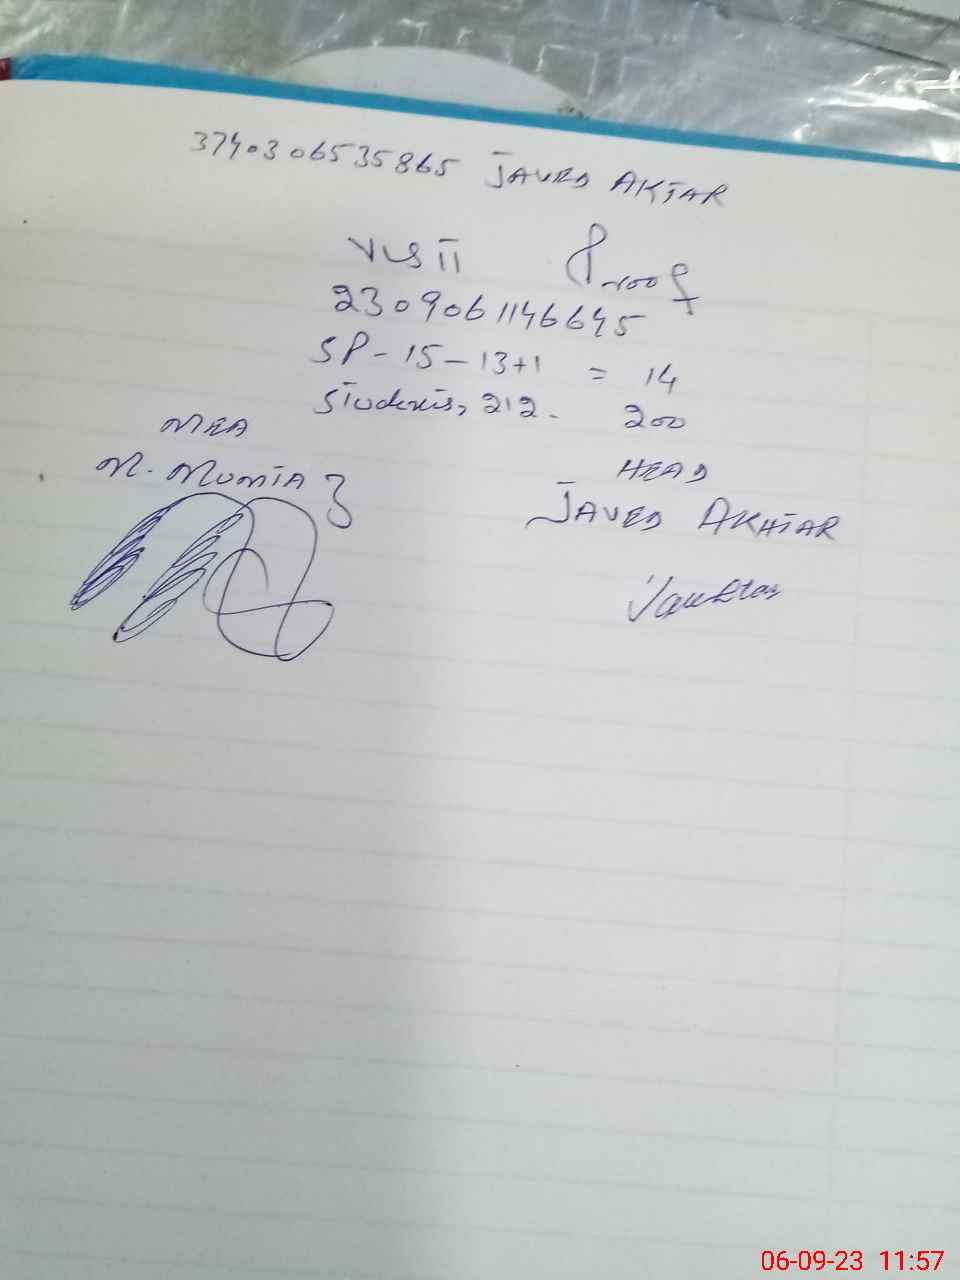 3740306535865 JAVED AKTAR
VISIT Proof
2309061146645
SP-15-13+1 = 14
Students, 212- 200
MEA
M. MUMTAZ
HEAD
JAVED AKHTAR
06-09-23 11:57